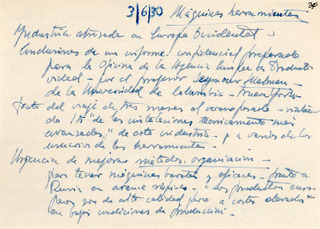 3/6/30 Máquinas herramientas
Industria atrasada en Europa Occidental
Conclusiones de un informe confidencial preparado
para la Oficina de la Agencia Europea de Productividad
vidad - por el profesor Seymour Melman
de la Universidad de Columbia - Nueva York
de tres meses al
de 15 "de las instalaciones técnicamente más
avanzadas" de esta industria - y a varios de los
usuarios de las herramientas -
Urgencia de mejores métodos, organización -
para tener máquinas baratas y eficaces - frente a
Rusia en avance rápido - los productos euro-
peos son de alta calidad pero a costes elevados
en bajas condiciones de producción -